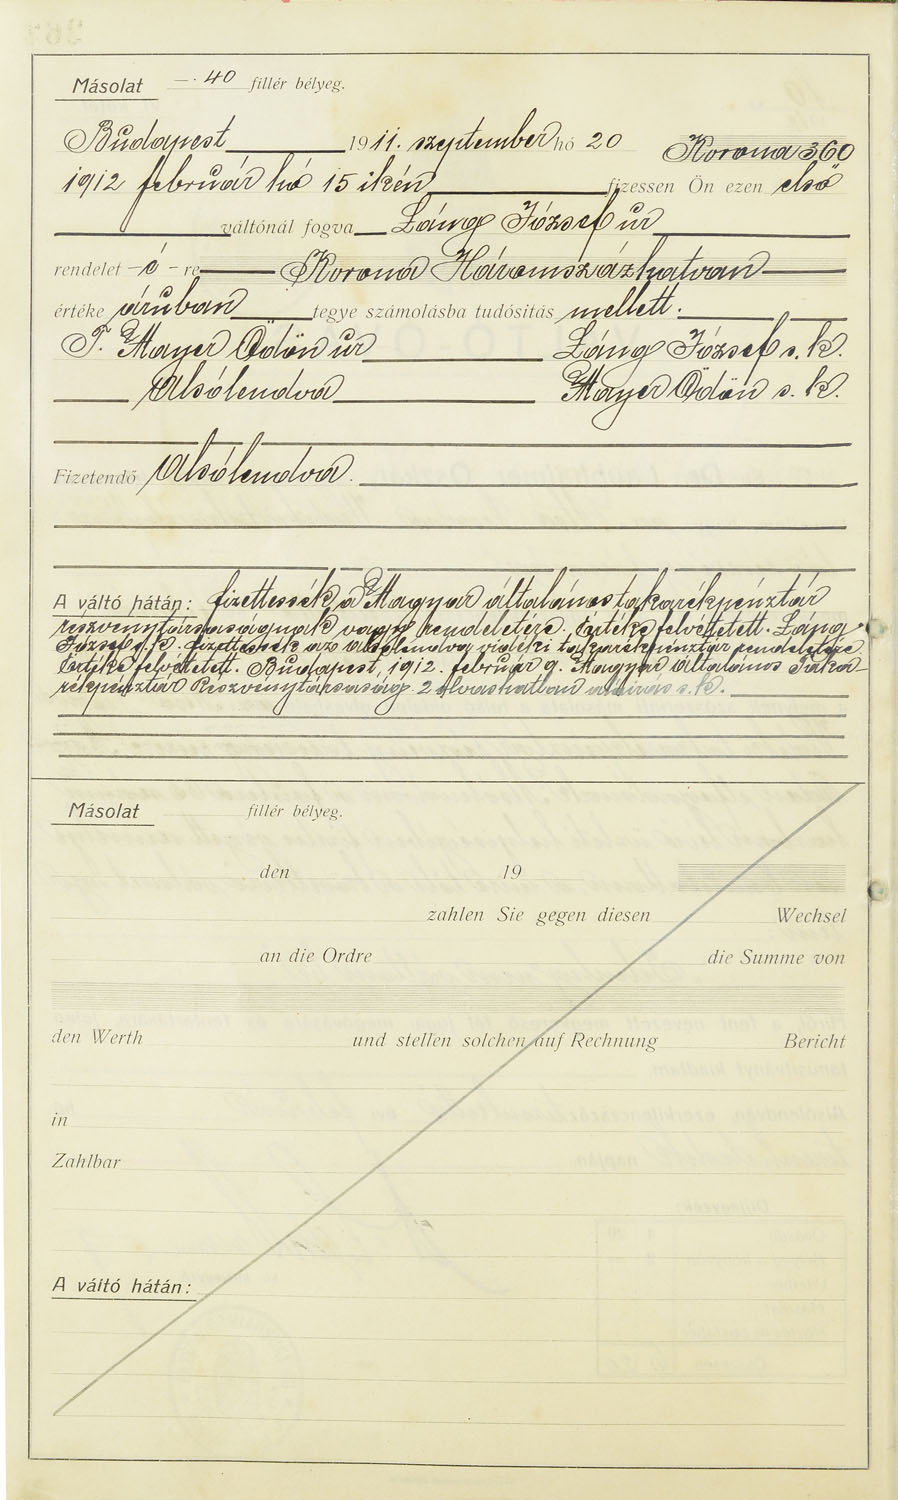 Másolat —.40 fillér bélyeg.
Budapest 1911. szeptember hó 20 Korona 360
1912 február hó 15 ikén fizessen Ön ezen első
váltónál fogva Láng József úr
rendelet -é -re Korona Háromszázhatvan
értéke áruban tegye számolásba tudósitás mellett.
T. Mayer Ödön úr Láng József s. k.
Alsólendva Mayer Ödön s. k.
Fizetendő Alsólendva.
A váltó hátán: fizettessék a Magyar általános takarékpénztár
részvénytársaságnak vagy rendeletére. Értéke felvétetett. Láng
József s. k. fizettessék az Alsólendva vidéki takarékpénztár rendeletére
Értéke felvétetett. Budapest, 1912. február 9. Magyar Általános Taka-
rékpénztár Részvénytársaság 2 olvashatlan aláirás s. k.
Másolat fillér bélyeg.
den 19
zahlen Sie gegen diesen Wechsel
an die Ordre die Summe von
den Werth und stellen solchen auf Rechnung Bericht
in
Zahlbar
A váltó hátán: